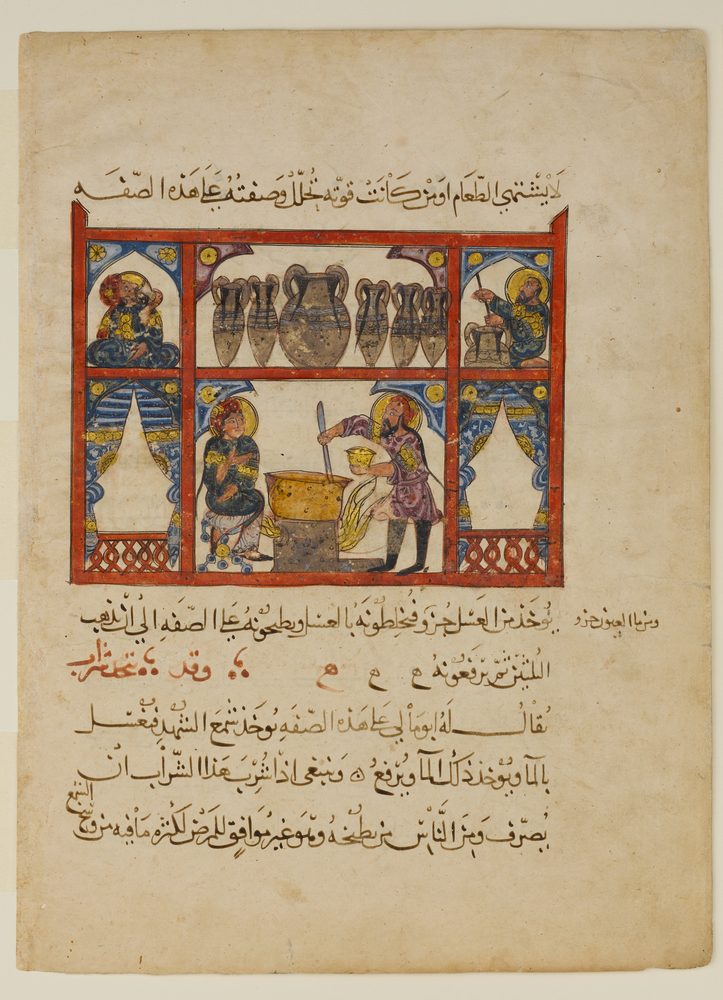 لا يشتهي الطعام او من كانت قوته تخلل وصفته على هذه الصفه
يوخذ من العسل جزو فيخلطونه بالعسل ويطبخونه على الصفه الي ان يذهب
ومن ما العيون جزو
الثلثين ثم يرفعونه ح ح ح وقد يتخذ شراب
يقال له ابومالي على هذه الصفه يوخذ شمع الشهد فيغسل
بالما ويوخذ ذلك الما ويرفع ۞ وينبغي اذا شرب هذا الشراب ان
يصرف ومن الناس من يطبخه وهو غير موافق للمرضى لكثره ما فيه من وسخ
الشمع